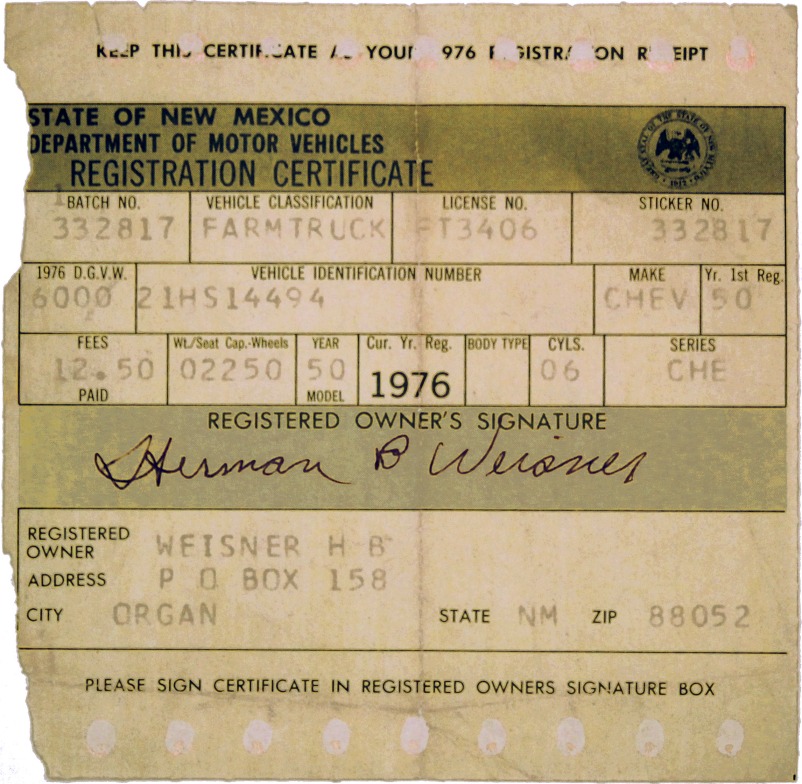 KEEP THIS CERTIFICATE AS YOUR 1976 REGISTRATION RECEIPT
STATE OF NEW MEXICO
DEPARTMENT OF MOTOR VEHICLES
REGISTRATION CERTIFICATE
BATCH NO. VEHICLE CLASSIFICATION LICENSE NO. STICKER NO.
332817 FARMTRUCK FT3406 332817
1976 D.G.V.W. VEHICLE IDENTIFICATION NUMBER MAKE Yr. 1st Reg.
6000 21HS14494 CHEV 50
FEES Wt./Seat Cap.-Wheels YEAR Cur. Yr. Reg. BODY TYPE CYLS. SERIES
12.50 02250 50 1976 06 CHE
PAID MODEL
REGISTERED OWNER'S SIGNATURE
Herman B Weisner
REGISTERED
OWNER WEISNER H B
ADDRESS P O BOX 158
CITY ORGAN STATE NM ZIP 88052
PLEASE SIGN CERTIFICATE IN REGISTERED OWNERS SIGNATURE BOX